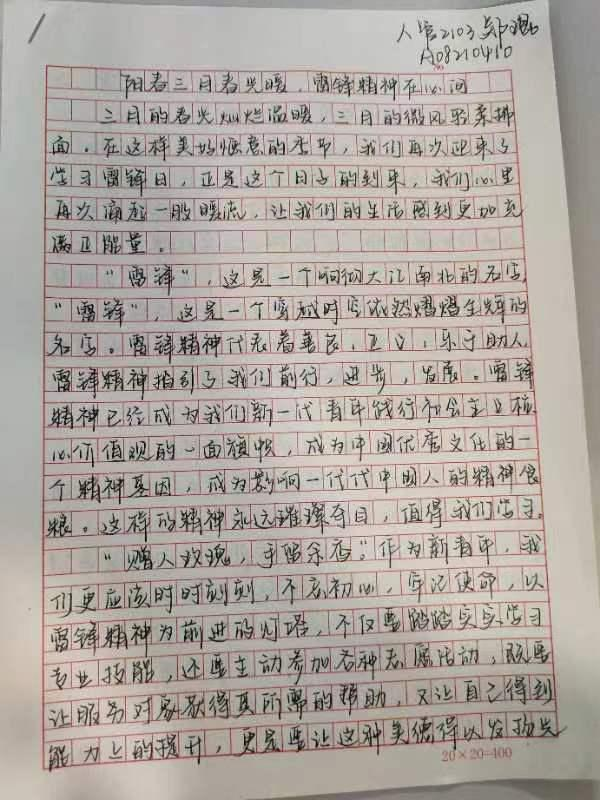 人管2103 郑琨
A08210410
阳春三月春光暖，雷锋精神在心间
三月的春光灿烂温暖，三月的微风轻柔拂
面。在这样美好惬意的季节，我们再次迎来了
学习雷锋日，正是这个日子的到来，我们心里
再次涌起一股暖流，让我们的生活感到更加充
满正能量。
“雷锋”，这是一个响彻大江南北的名字，
“雷锋”，这是一个穿越时空依然熠熠生辉的
名字。雷锋精神代表着善良，正义，乐于助人，
雷锋精神指引了我们前行，进步，发展。雷锋
精神已经成为我们新一代青年践行社会主义核
心价值观的一面旗帜，成为中国优秀文化的一
个精神基因，成为影响一代代中国人的精神食
粮。这样的精神永远璀璨夺目，值得我们学习。
“赠人玫瑰，手留余香”。作为新青年，我
们更应该时时刻刻，不忘初心，牢记使命，以
雷锋精神为前进的灯塔，不仅要踏踏实实学习
专业技能，还要主动参加各种志愿活动，既要
让服务对象获得其所需的帮助，又让自己得到
能力上的提升，更是要让这种美德得以发扬光
20×20=400